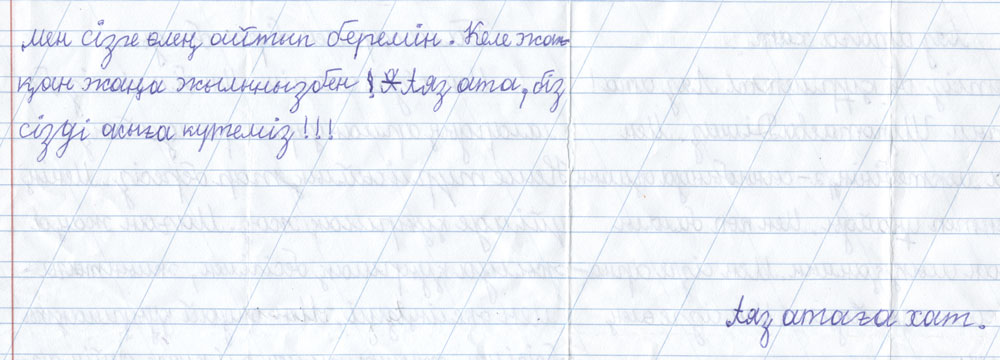 мен сізге өлең айтып беремін. Келе жат-
қан жаңа жылыңызбен! Аяз ата, біз
сізді асыға күтеміз!!!
Аяз атаға хат.